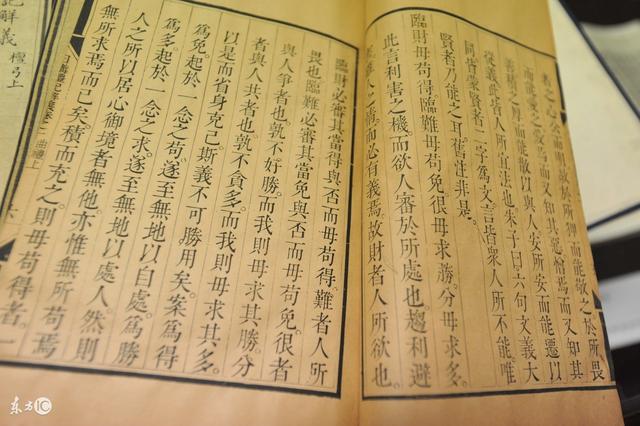 所狎而能敬之於所畏
焉而又知其惡憎焉而又知其
而能散以與人安所安而能遷以
從義此皆人所宜法也朱子曰六句文義大
同皆蒙賢者二字為文言皆衆人所不能唯
賢者乃能之耳舊注非是。
臨財毋苟得。臨難毋苟免很毋求勝。分毋求多。
此言利害之機而欲人審於所處也趨利避
而必有義焉故財者人所欲也
臨財必審其當得與否而毋苟得。難者人所
畏也臨難必審其當免與否而毋苟免。很者
與人爭者也孰不好勝而我則毋求其勝。分
者與人共者也孰不貪多而我則毋求其多。
以是而省身克己斯義不可勝用矣。案為得
為免起於一念之苟。遂至無地以自處。為勝
為多。起於一念之求。遂至無地以處人。然則
人之所以居心御境者無他亦惟無所苟焉
無所求焉而已矣。積而充之則毋苟得者。一
曲禮上
記解義 檀弓上
东方IC